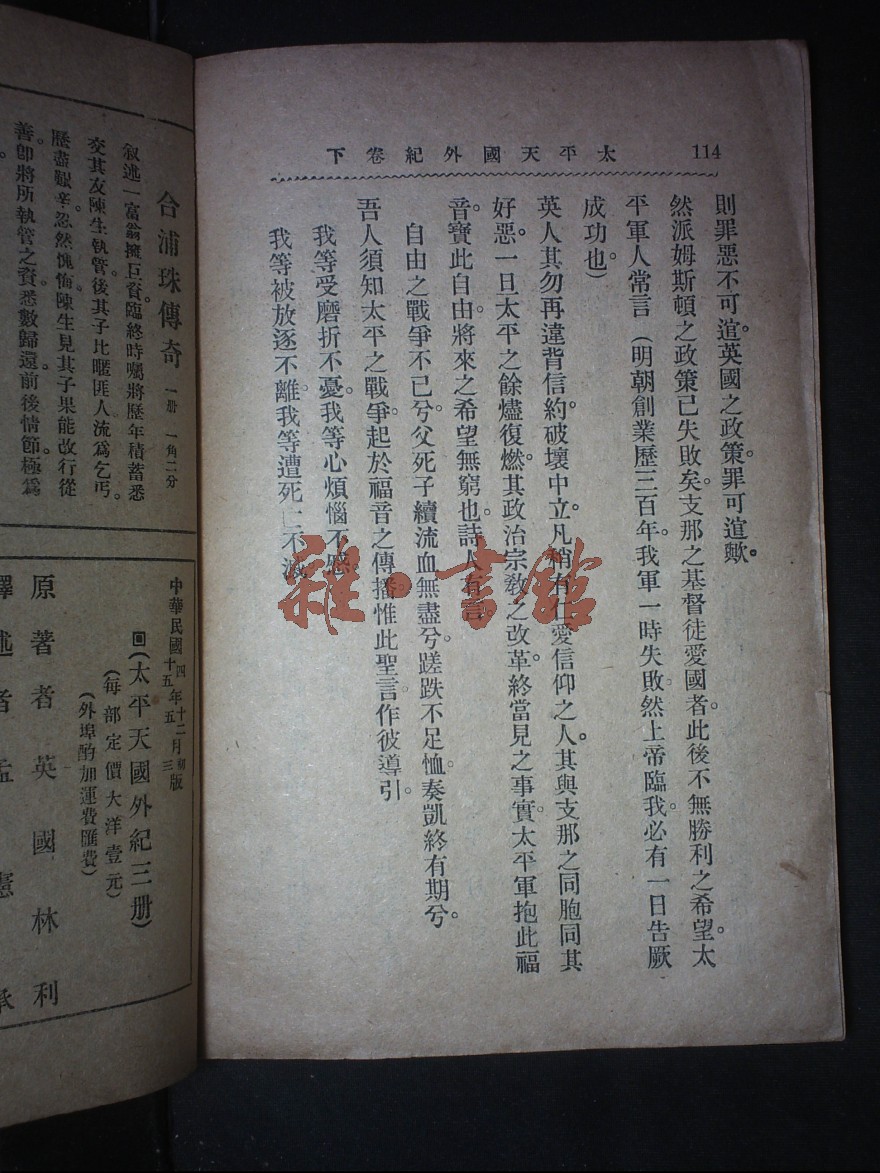 114
太平天國外紀卷下
則罪惡不可逭。英國之政策。罪可逭歟。
然派姆斯頓之政策已失敗矣。支那之基督徒愛國者。此後不無勝利之希望。太
平軍人常言（明朝創業歷三百年。我軍一時失敗。然上帝臨我。必有一日告厥
成功也）
英人其勿再違背信約。破壞中立。凡稍有仁愛信仰之人。其與支那之同胞同其
好惡。一旦太平之餘燼復燃。其政治宗教之改革。終當見之事實。太平軍抱此福
音。寶此自由。將來之希望無窮也。詩人有言
自由之戰爭不已兮。父死子續流血無盡兮。蹉跌不足恤。奏凱終有期兮。
吾人須知太平之戰爭。起於福音之傳播。惟此聖言。作彼導引。
我等受磨折不憂。我等心煩惱不惑。
我等被放逐不離。我等遭死亡不滅
雜·書館
合浦珠傳奇 一册 一角二分
叙述一富翁擁巨資。臨終時囑將歷年積蓄悉
交其友陳生執管。後其子比暱匪人。流爲乞丐。
歷盡艱辛。忽然愧悔。陳生見其子果能改行從
善。卽將所執管之資。悉數歸還。前後情節。極爲
中華民國四年十二月初版
十五年五三
回（太平天國外紀三册）
（每部定價大洋壹元）
（外埠酌加運費匯費）
原著者英國林利
譯述者孟憲承